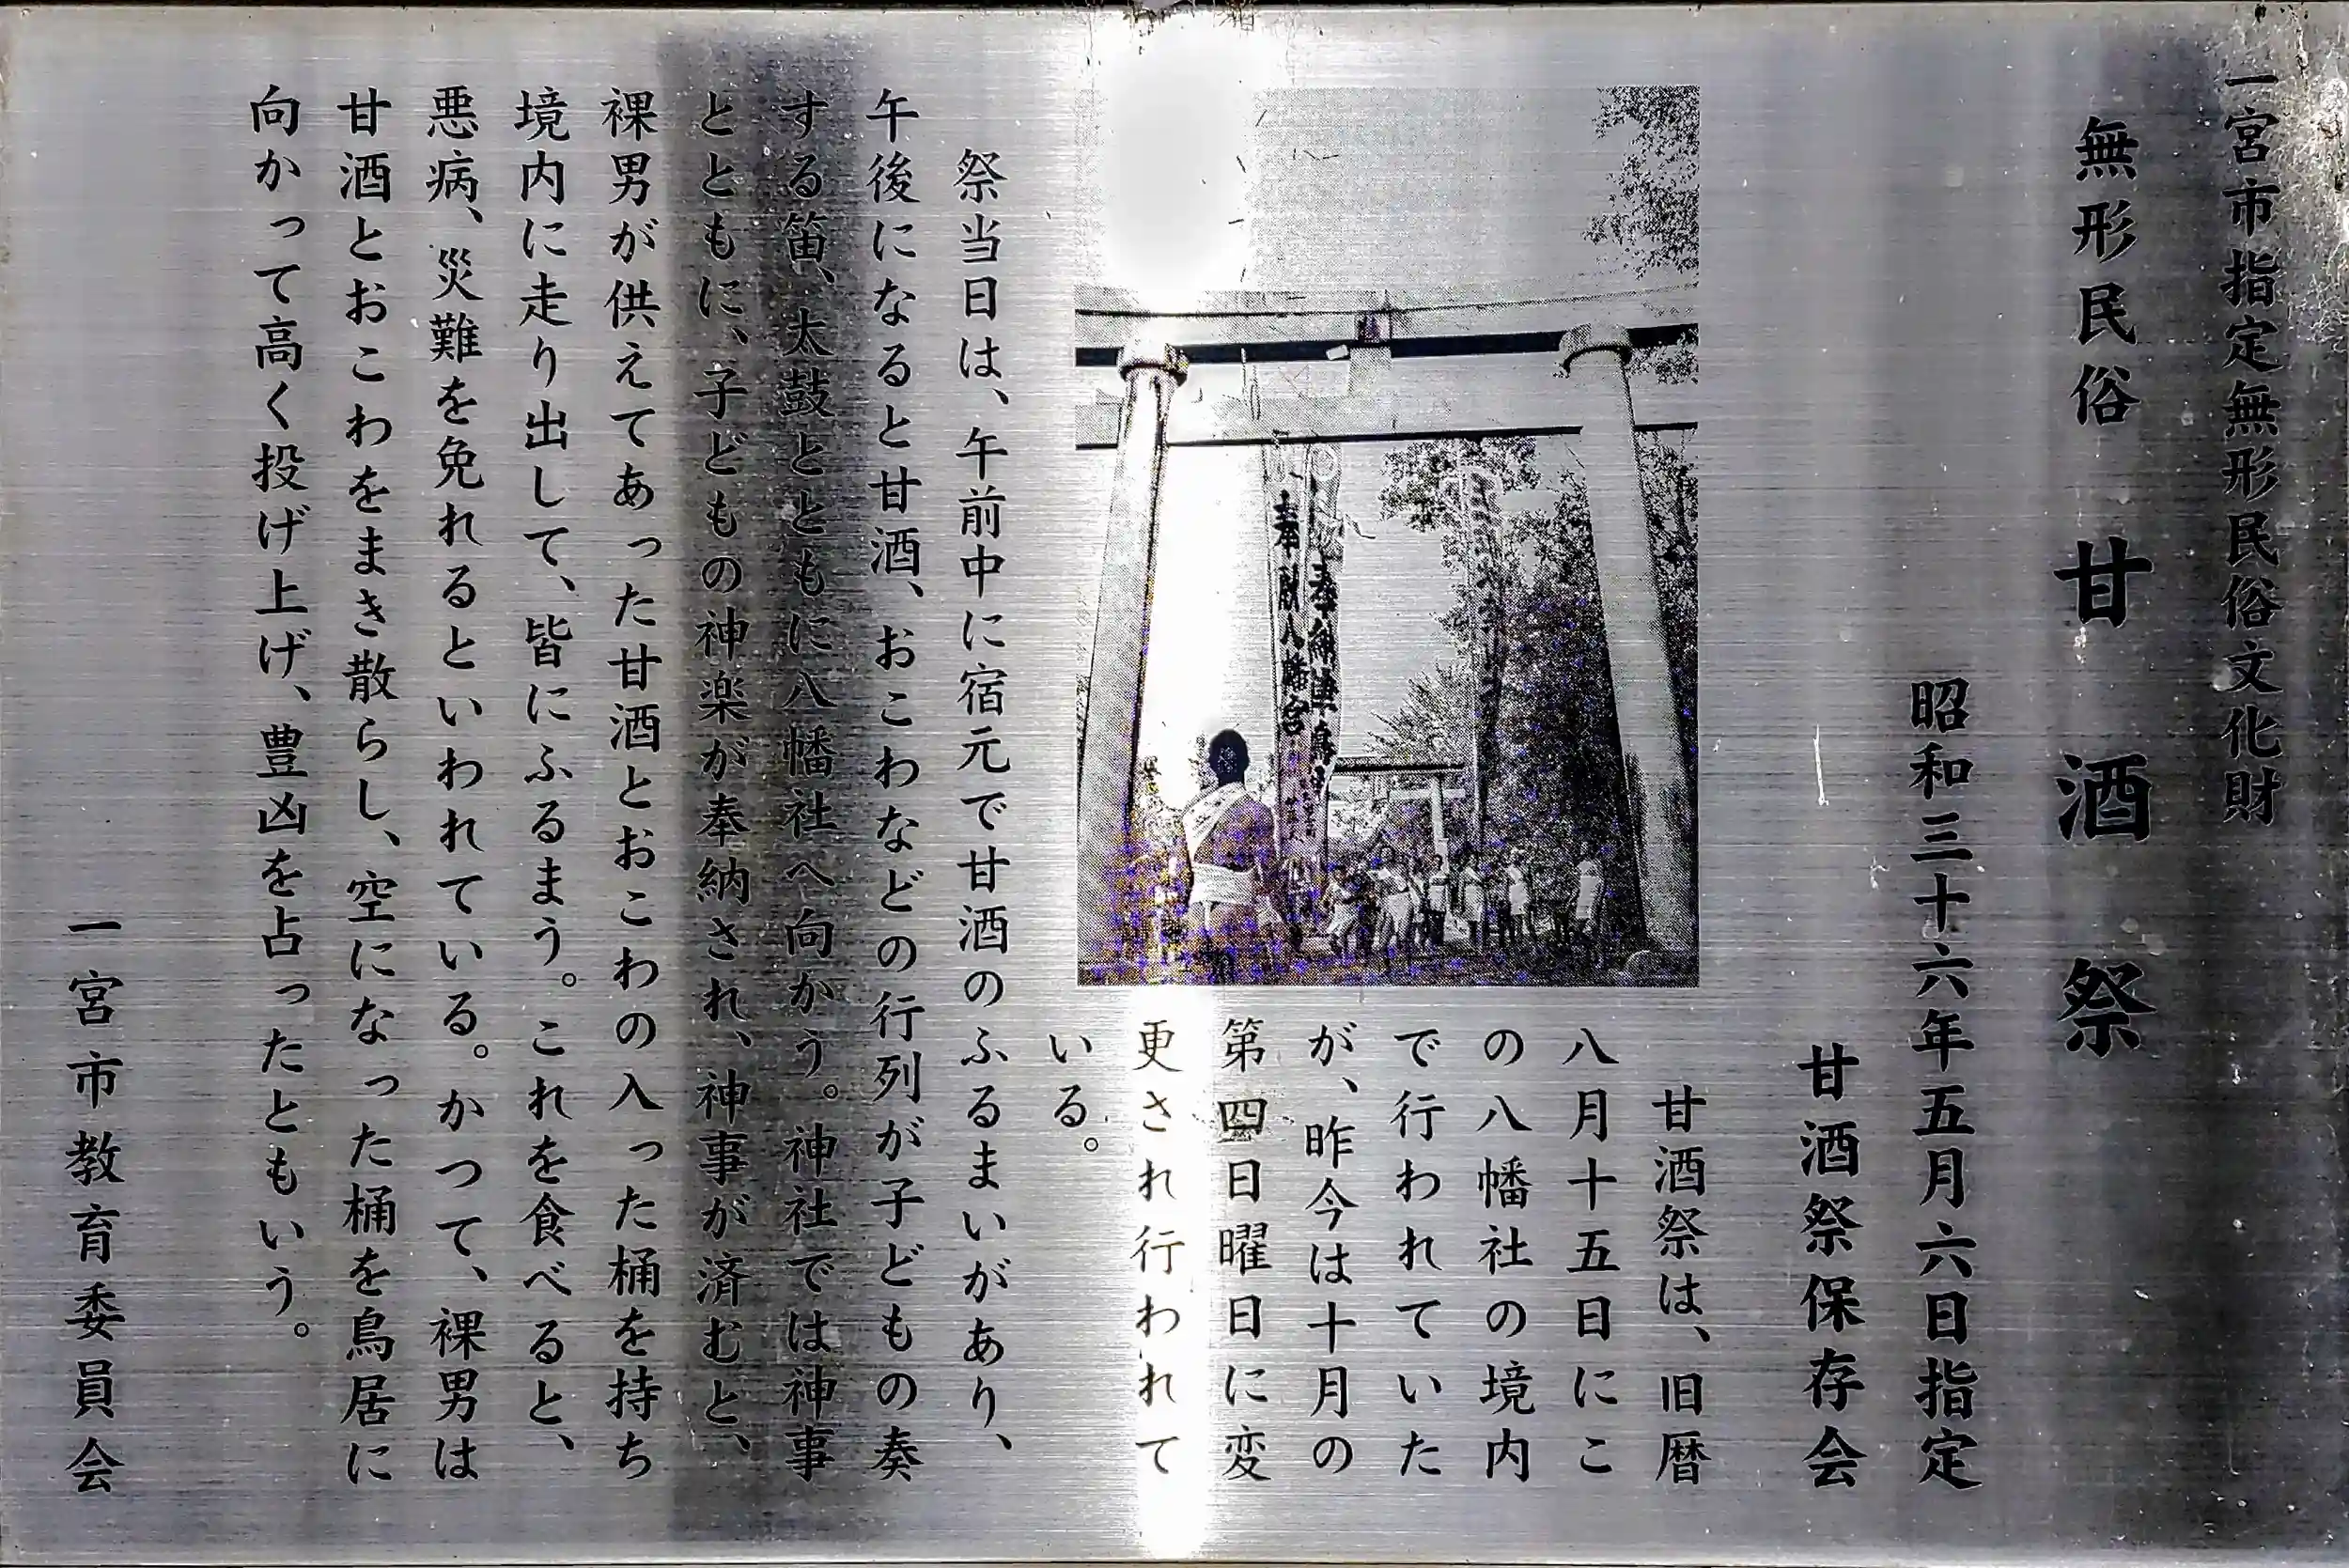 一宮市指定無形民俗文化財
無形民俗 甘酒祭
昭和三十六年五月六日指定
甘酒祭保存会
甘酒祭は、旧暦
八月十五日にこ
の八幡社の境内
で行われていた
が、昨今は十月の
第四日曜日に変
更され行われて
いる。
祭当日は、午前中に宿元で甘酒のふるまいがあり、
午後になると甘酒、おこわなどの行列が子どもの奏
する笛、太鼓とともに八幡社へ向かう。神社では神事
とともに、子どもの神楽が奉納され、神事が済むと、
裸男が供えてあった甘酒とおこわの入った桶を持ち
境内に走り出して、皆にふるまう。これを食べると、
悪病、災難を免れるといわれている。かつて、裸男は
甘酒とおこわをまき散らし、空になった桶を鳥居に
向かって高く投げ上げ、豊凶を占ったともいう。
一宮市教育委員会
奉献八幡宮